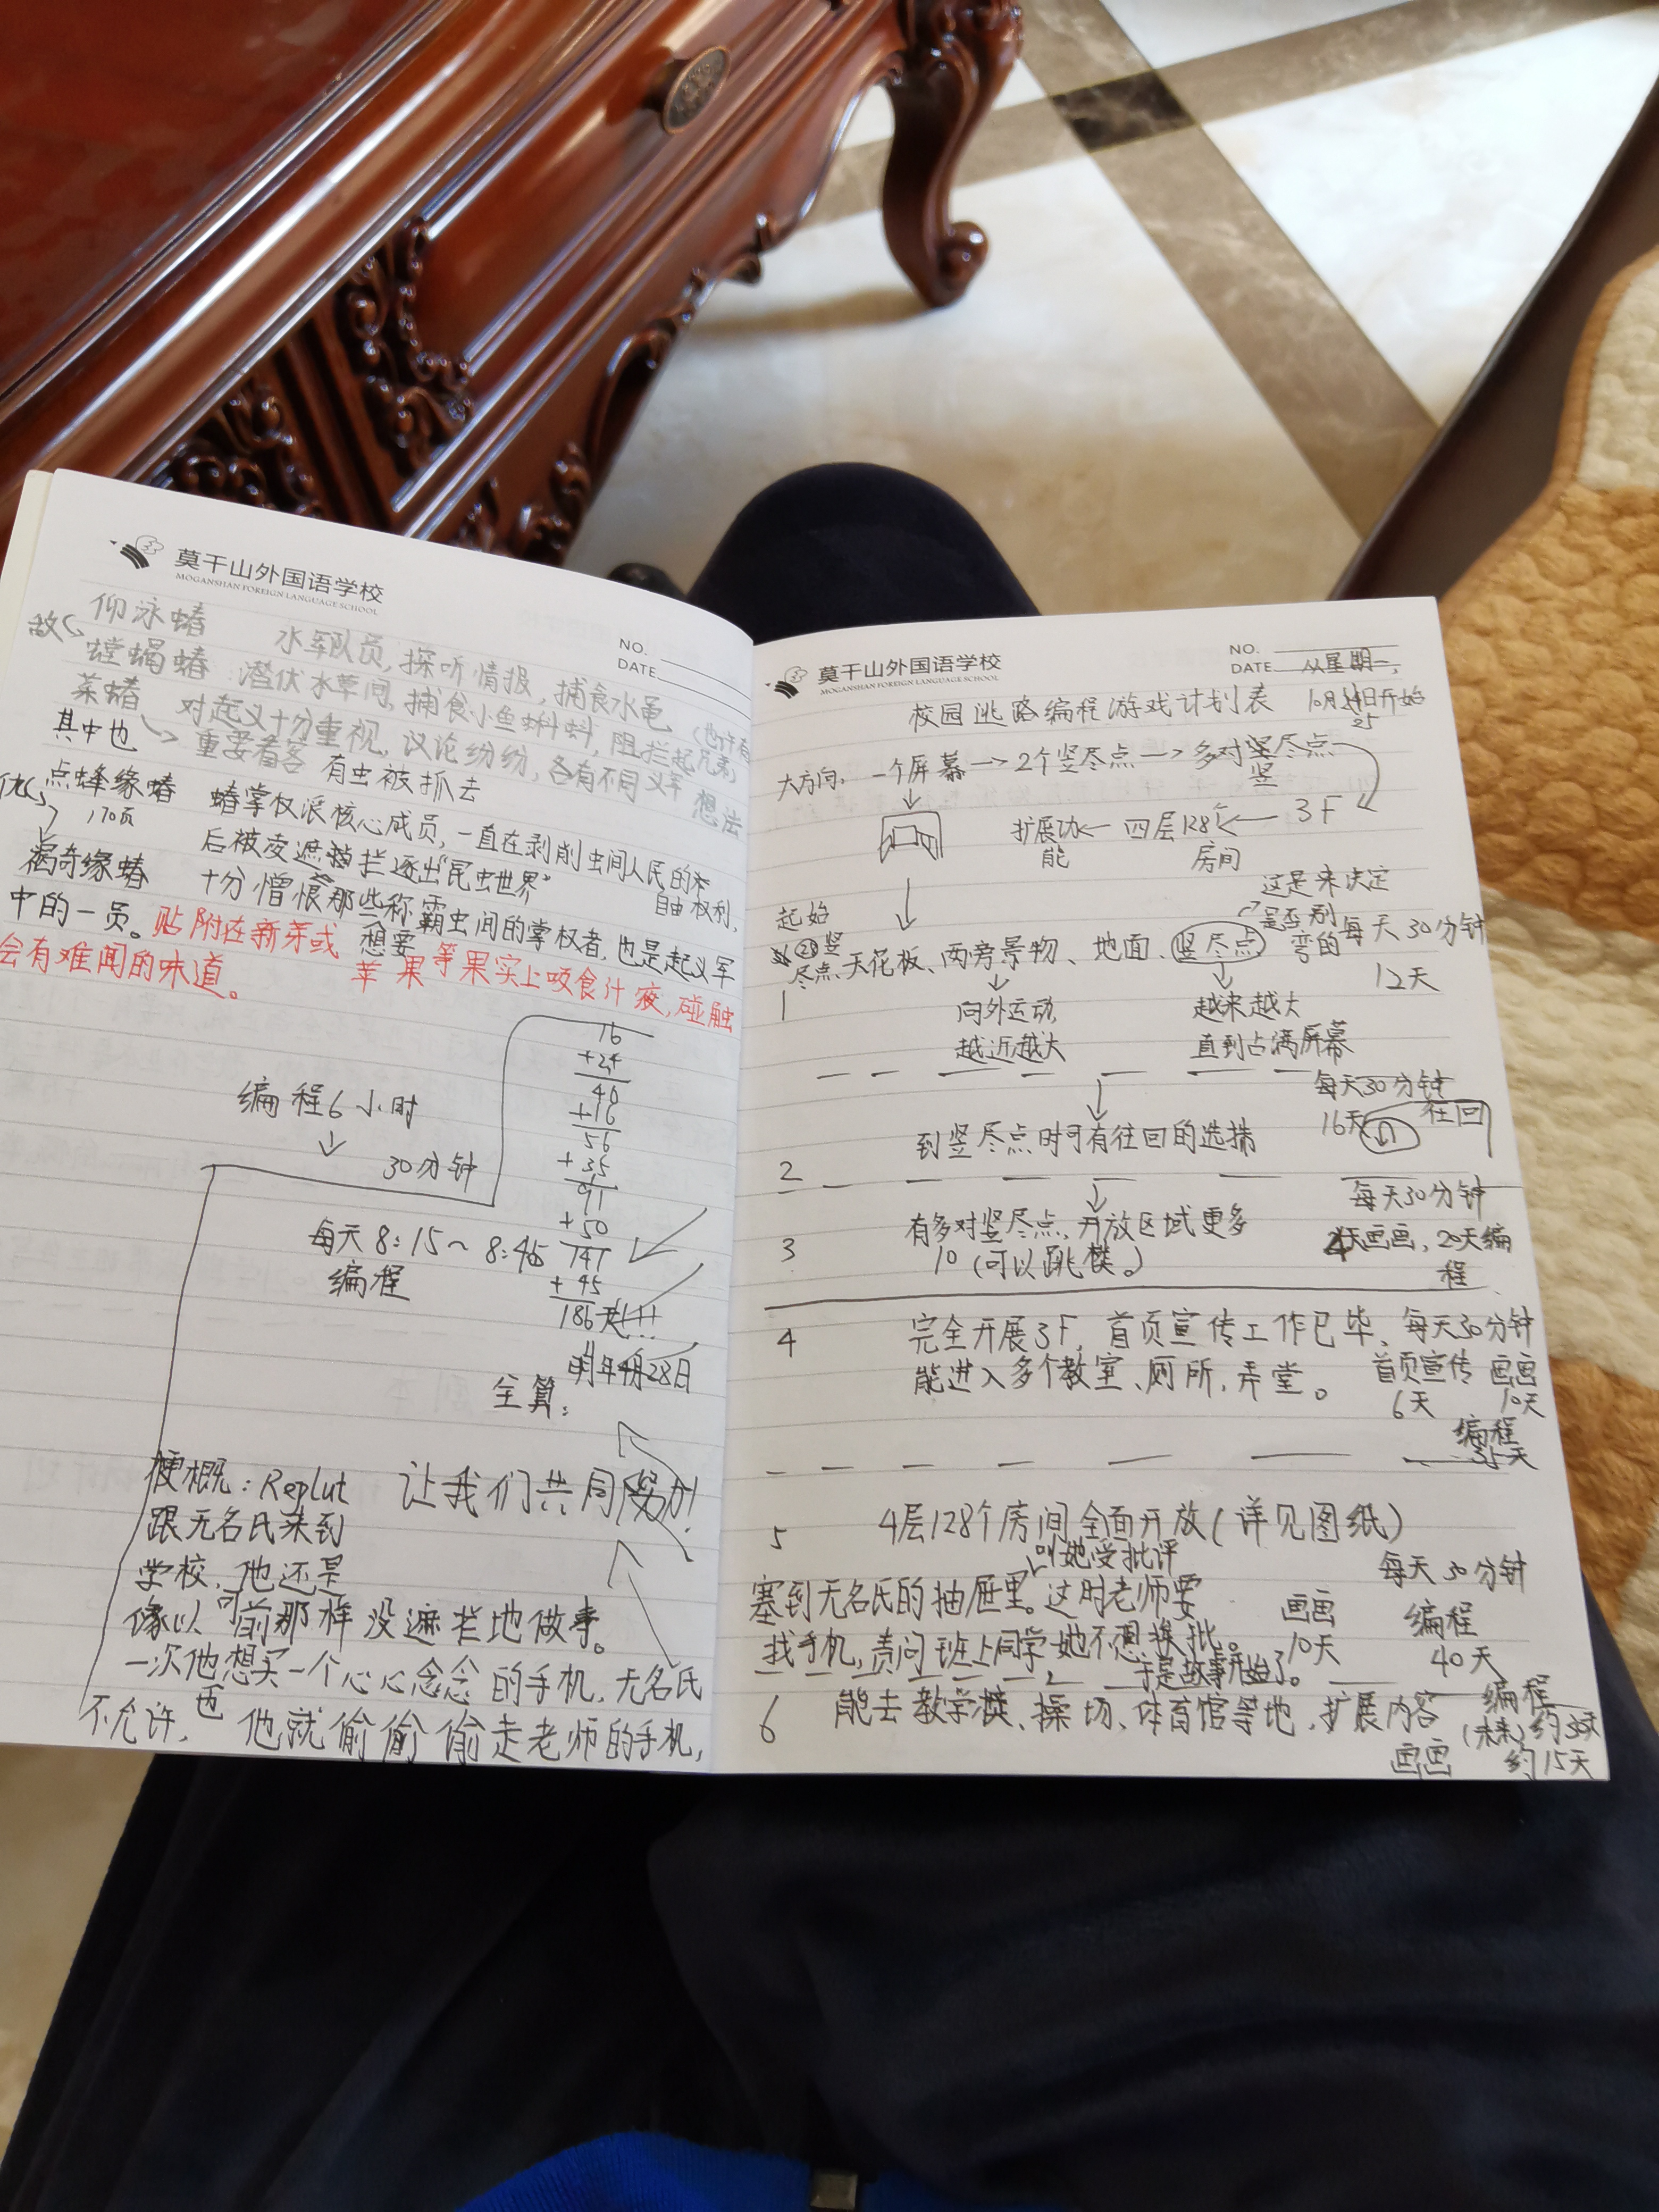 莫干山外国语学校
MOGANSHAN FOREIGN LANGUAGE SCHOOL
NO.
DATE
仰泳蝽 水军队员,探听情报,捕食水黾
螳蝎蝽 潜伏水草间,捕食小鱼蝌蚪,阻拦起义军
茶蝽 对起义十分重视,议论纷纷,各有不同想法
其中也 重要看客 有虫被抓去
点蜂缘蝽 蝽掌权派核心成员,一直在剥削虫间人民的
170页 自由权利,
后被凌遮拦逐出“昆虫世界”
褐奇缘蝽 十分憎恨那些称霸虫间的掌权者,也是起义军
想要
中的一员。贴附在新芽或苹果等果实上吸食汁液,碰触
会有难闻的味道。
16
+24
40
+16
56
+35
91
+50
141
+45
186天!!!
明年4月28日
编程6小时
30分钟
每天8:15~8:45
编程
全算:
让我们共同努力!
梗概:Replut
跟无名氏来到
学校,他还是
像以前那样没遮拦地做事。
一次他想买一个心心念念的手机,无名氏
不允许,他就偷偷偷走老师的手机,
莫干山外国语学校
MOGANSHAN FOREIGN LANGUAGE SCHOOL
NO.
DATE 从星期一,
校园逃路编程游戏计划表 10月25日开始
大方向: 一个屏幕→2个竖尽点→多对竖尽点
竖
扩展功能←四层128个房间←3F
这是来决定
是否别
弯的
起始
2个竖
尽点 天花板、两旁景物、地面、竖尽点
每天30分钟
12天
1
向外运动
越近越大
越来越大
直到占满屏幕
每天30分钟
16天
往回
到竖尽点时可有往回的选择
2
每天30分钟
4天画画,20天编程
有多对竖尽点,开放区域更多
3 10(可以跳楼。)
4 完全开展3F,首页宣传工作已毕、每天30分钟
能进入多个教室、厕所、弄堂。 首页宣传 画画
6天 10天
编程
35天
5 4层128个房间全面开放(详见图纸)
叫她受批评
每天30分钟
塞到无名氏的抽屉里。这时老师要
画画 编程
10天 40天
找手机,责问班上同学她不想挨批。
于是故事开始了。
6 能去教学楼、操场、体育馆等地,扩展内容
编程
(未来)约30天
画画 约15天